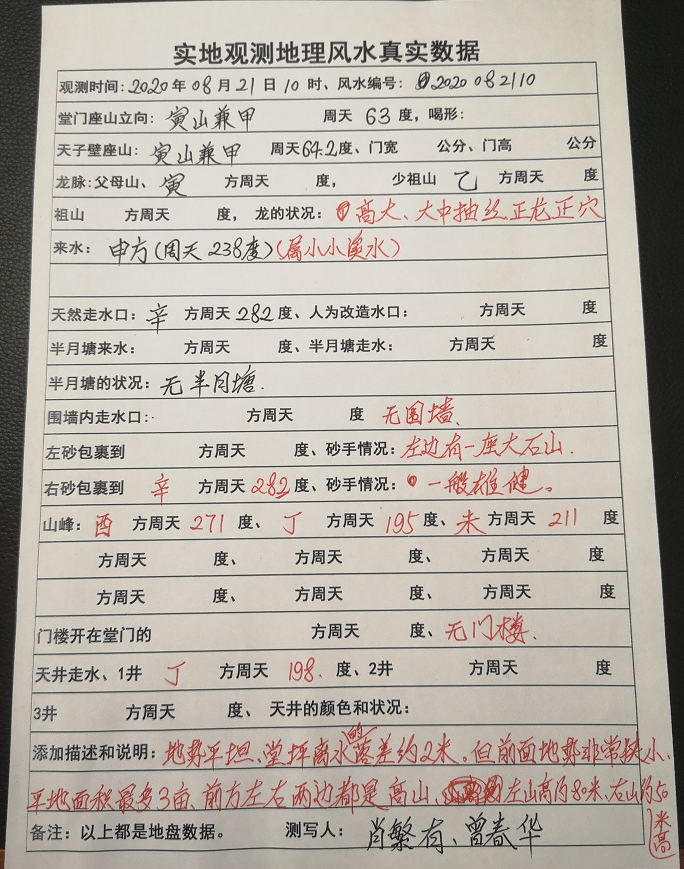 实地观测地理风水真实数据
观测时间:2020年08月21日10时、风水编号: 2020082110
堂门座山立向: 寅山兼甲 周天 63 度，喝形:
天子壁座山: 寅山兼甲 周天64.2度、门宽 公分、门高 公分
龙脉:父母山、寅 方周天 度， 少祖山 乙 方周天 度
祖山 方周天 度， 龙的状况: 高大、大中抽丝正龙正穴
来水: 申方(周天238度)(属小小溪水)
天然走水口: 辛 方周天282度、人为改造水口: 方周天 度
半月塘来水: 方周天 度、半月塘走水: 方周天 度
半月塘的状况: 无半月塘.
围墙内走水口: 方周天 度 无围墙.
左砂包裹到 方周天 度、砂手情况: 左边有一座大石山.
右砂包裹到 辛 方周天282度、砂手情况: 一般雄健。
山峰: 酉 方周天 271 度、 丁 方周天 195度、未 方周天 211 度
方周天 度、 方周天 度、 方周天 度
方周天 度、 方周天 度、 方周天 度
门楼开在堂门的 方周天 度、无门楼.
天井走水、1井 丁 方周天 198. 度、2井 方周天 度
3井 方周天 度、 天井的颜色和状况:
添加描述和说明: 地势平坦、堂坪离水的落差约2米。但前面地势非常狭小、
平地面积最多3亩、前方左右两边都是高山、左山高约80米、右山约50
米高
备注: 以上都是地盘数据。 测写人: 肖繁有、曾春华